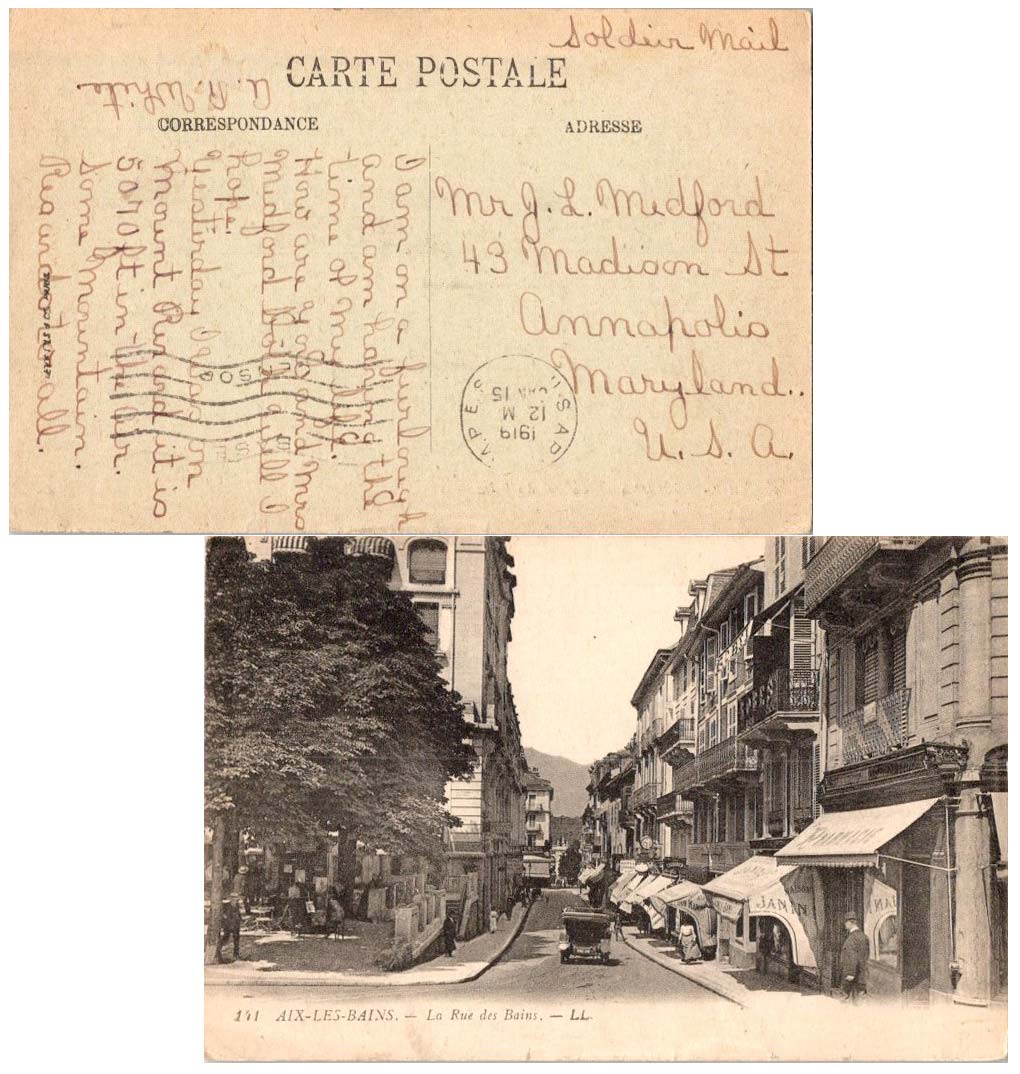 Soldier Mail
CARTE POSTALE
CORRESPONDANCE
ADRESSE
A. R. White
I am on a furlough
and am having the
time of my life.
How are you and Mrs
Medford. Both well I
hope.
Yesterday I was on
Mount Revard it is
5070 ft in the air.
Some Mountain.
Regards to all.
Mr J. L. Medford
43 Madison St
Annapolis
Maryland.
U. S. A.
M.P.E.S.
U.S.A.P.O.
JAN 15
12 M
1919
PHARMACIE
MAISON
NINAL
141 AIX-LES-BAINS. — La Rue des Bains. — LL.